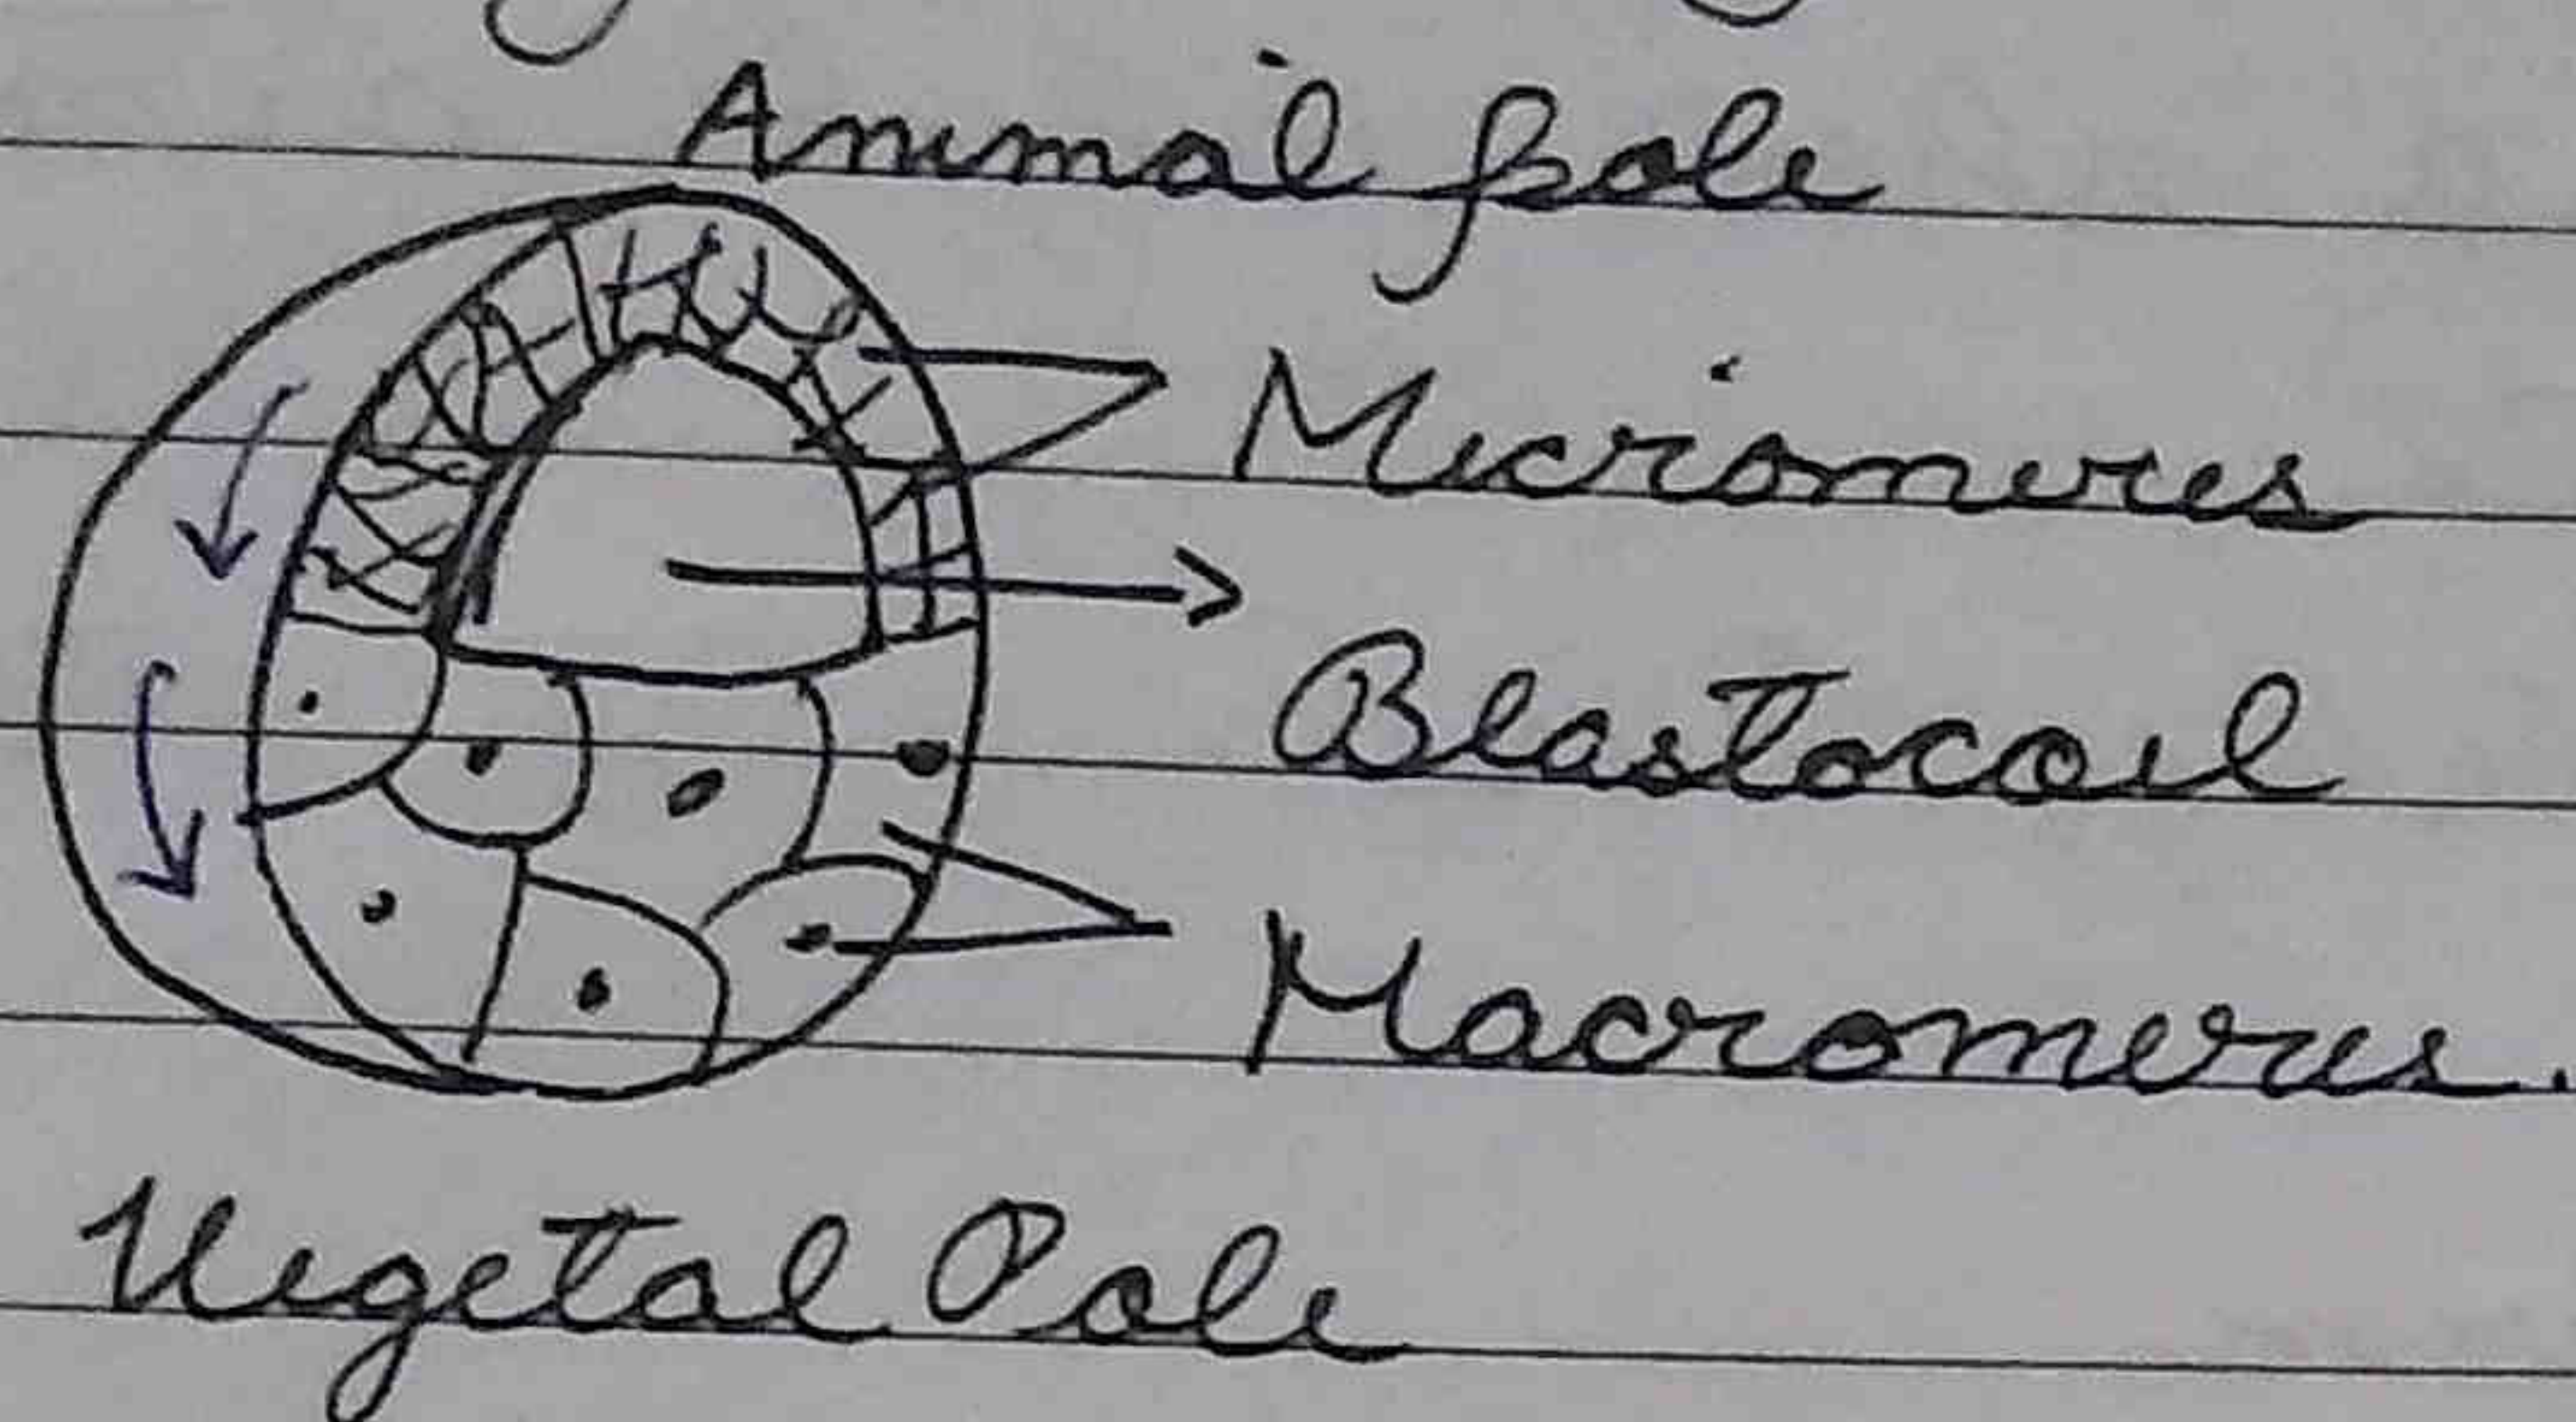 Animal pole
Micromeres
Blastocoel
Macromeres.
Vegetal Pole